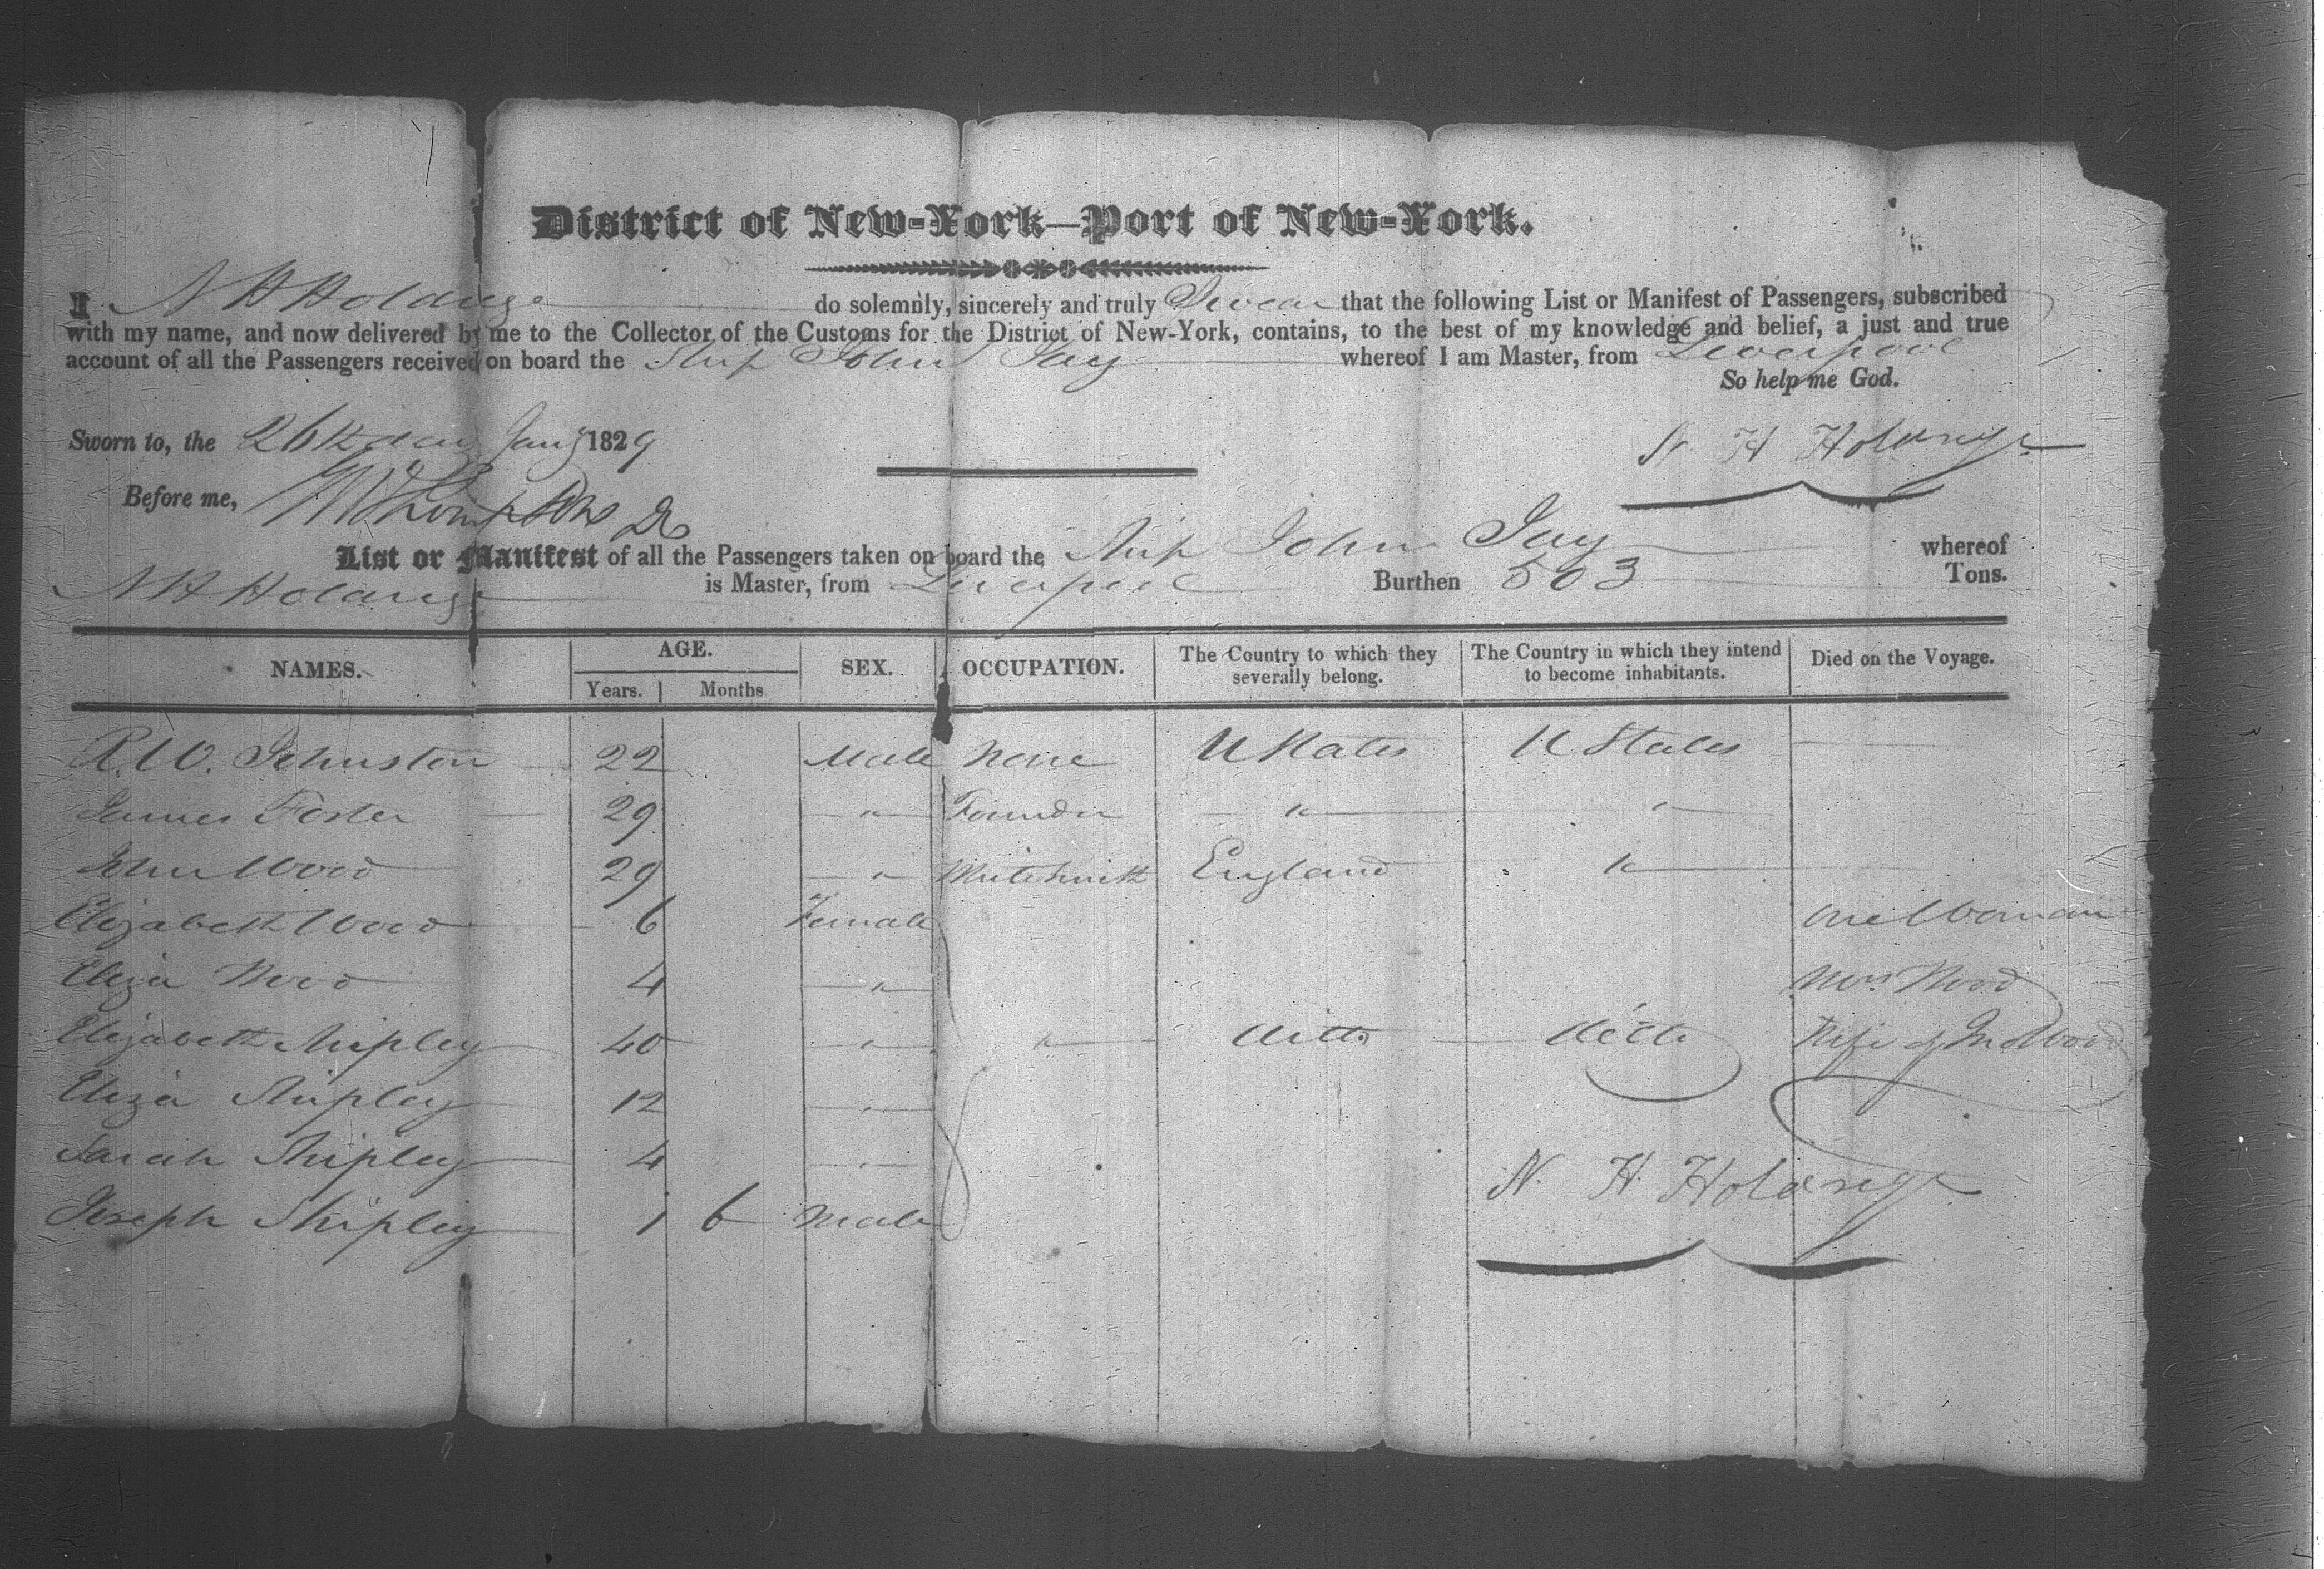 District of New-York—Port of New-York.
I N H Holdrege do solemnly, sincerely and truly Swear that the following List or Manifest of Passengers, subscribed
with my name, and now delivered by me to the Collector of the Customs for the District of New-York, contains, to the best of my knowledge and belief, a just and true
account of all the Passengers received on board the Ship John Jay whereof I am Master, from Liverpool
So help me God.
Sworn to, the 26th day Jany 1829
N. H Holdrege
Before me,
List or Manifest of all the Passengers taken on board the Ship John Jay whereof
N H Holdrege is Master, from Liverpool Burthen 503 Tons.
NAMES. AGE. Years. Months SEX. OCCUPATION. The Country to which they severally belong. The Country in which they intend to become inhabitants. Died on the Voyage.
R. W. Johnston 22 Male None U States U States
James Foster 29 " Founder " "
John Wood 29 " Whitesmith England "
Elizabeth Wood 6 Female One Woman
Eliza Wood 4 " Mrs Wood
Elizabeth Shipley 40 " " ditto ditto Wife of Jno Wood
Eliza Shipley 12 "
Sarah Shipley 4 "
N. H. Holdrege
Joseph Shipley 1 6 Male